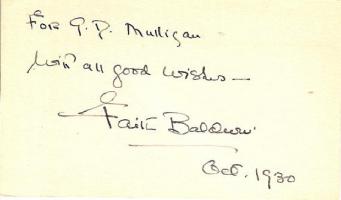 For G. P. Mulligan
With all good wishes—
Faith Baldwin
Oct. 1930